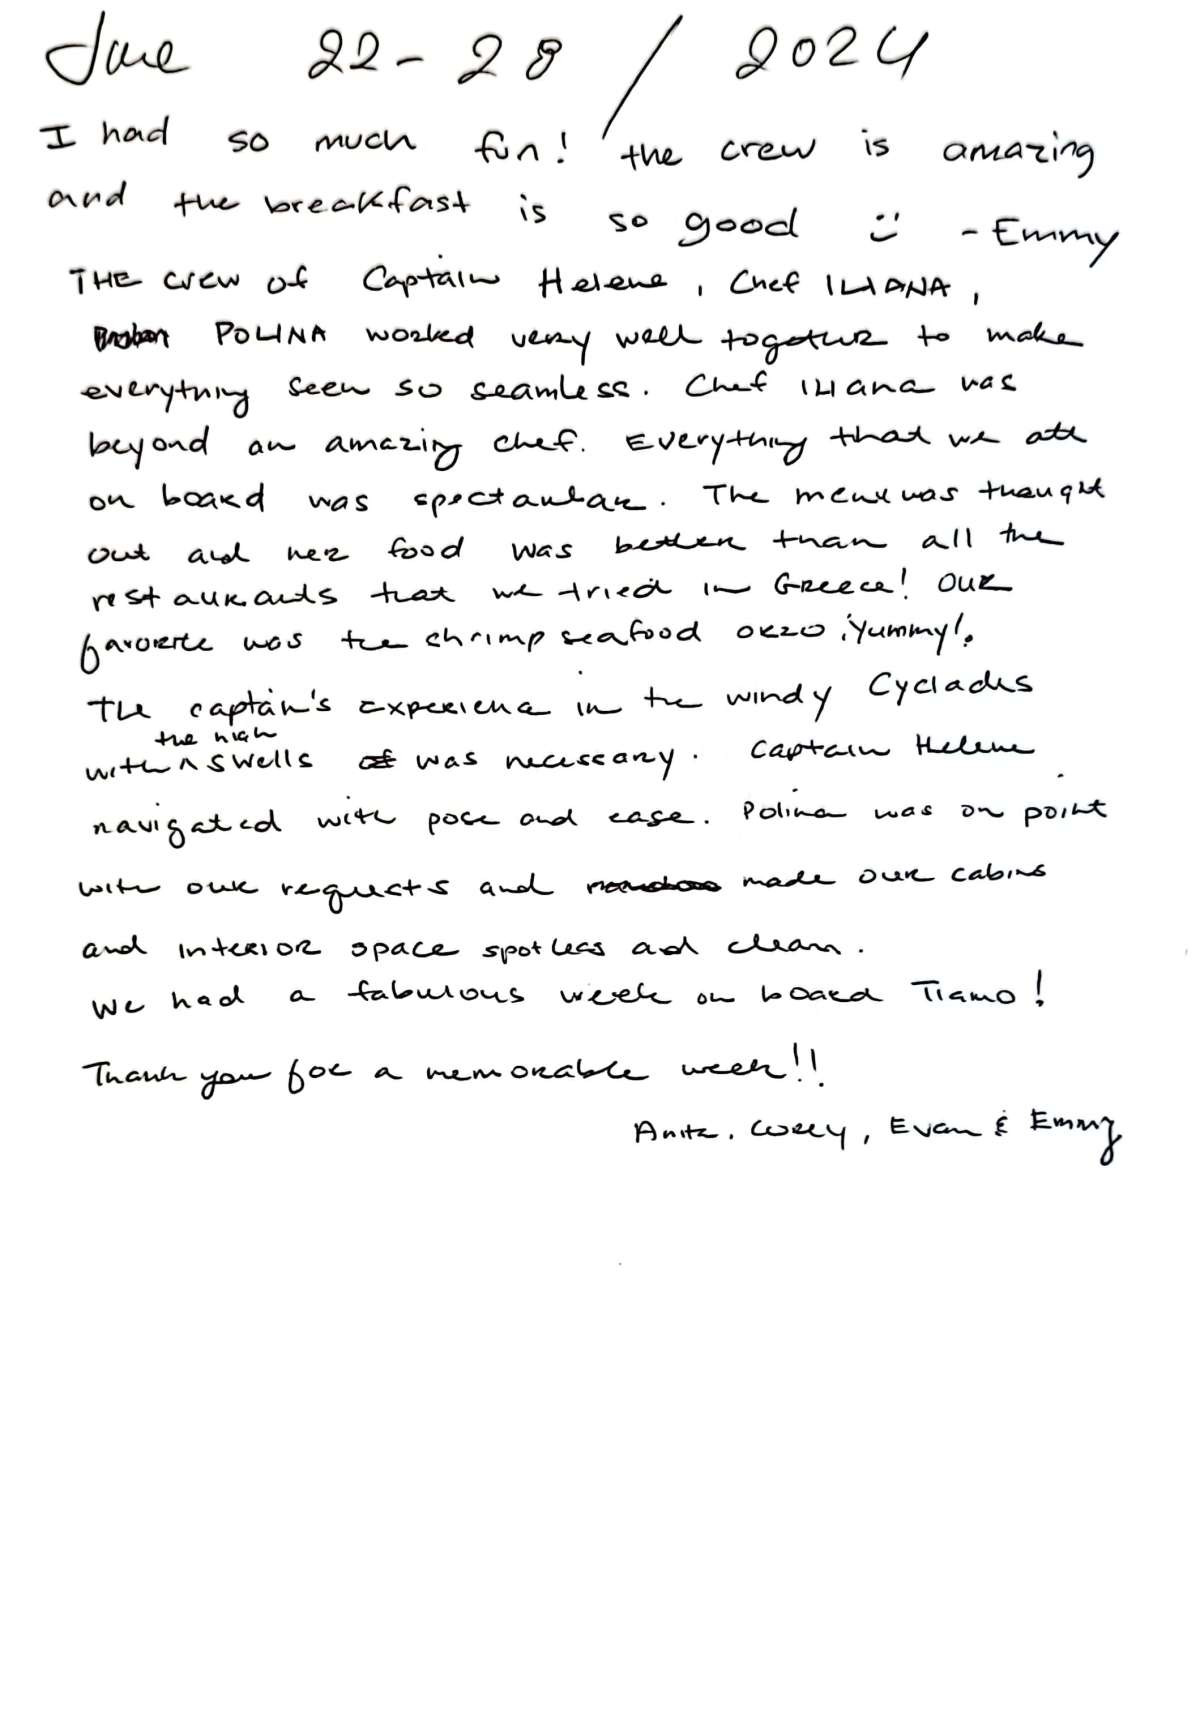 June 22-28 / 2024
I had so much fun! the crew is amazing
and the breakfast is so good :) - Emmy
THE crew of Captain Helene, Chef ILIANA,
POLINA worked very well together to make
everything seem so seamless. Chef Iliana was
beyond an amazing chef. Everything that we ate
on board was spectacular. The menu was thought
out and her food was better than all the
restaurants that we tried in Greece! Our
favorite was the shrimp seafood orzo ¡Yummy!.
The captain's experience in the windy Cyclades
the high
with ^ swells was necessary. Captain Helene
navigated with pose and ease. Polina was on point
with our requests and made our cabins
and interior space spotless and clean.
We had a fabulous week on board Tiamo!
Thank you for a memorable week!!
Anita, Corey, Evan & Emmy